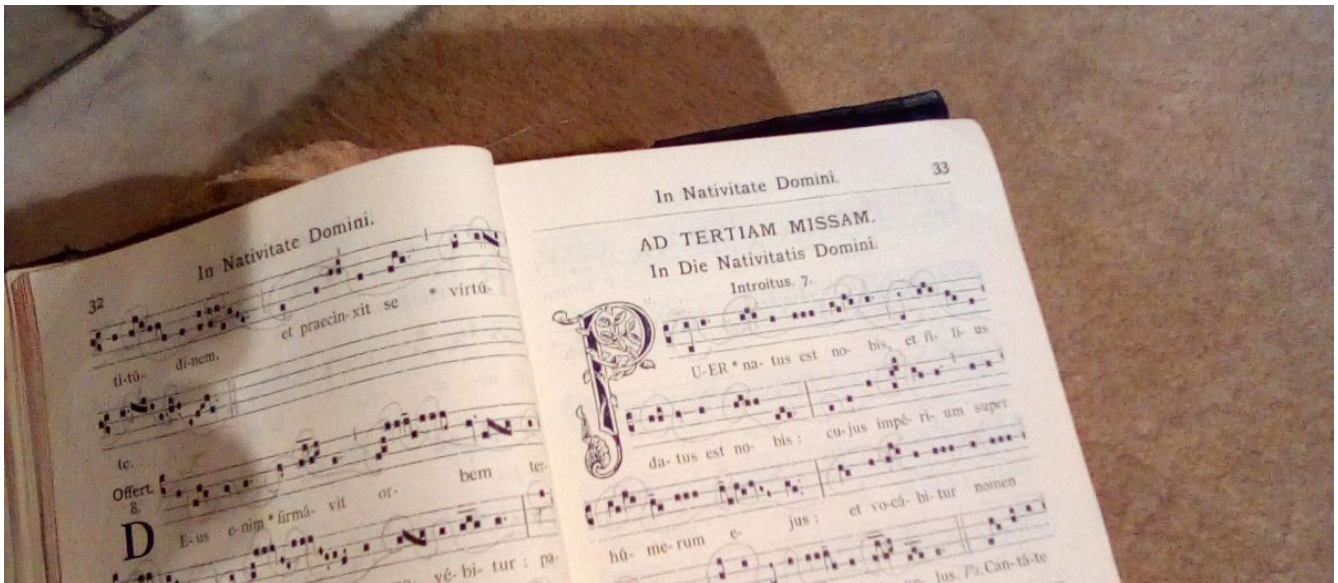 32
In Nativitate Domini.
ti-tú- di-nem. et praecin-xit se * virtú-
te.
Offert.
8.
DE-us e-nim * firmá- vit or- bem ter-
vé-bi- tur : pa-
In Nativitate Domini.
33
AD TERTIAM MISSAM.
In Die Nativitatis Domini.
Introitus. 7.
PU-ER * na- tus est no- bis, et fí- li- us
da- tus est no- bis : cu-jus impé- ri- um super
hú- me-rum e- jus : et vo-cá- bi- tur nomen
lus. Ps. Can-tá-te